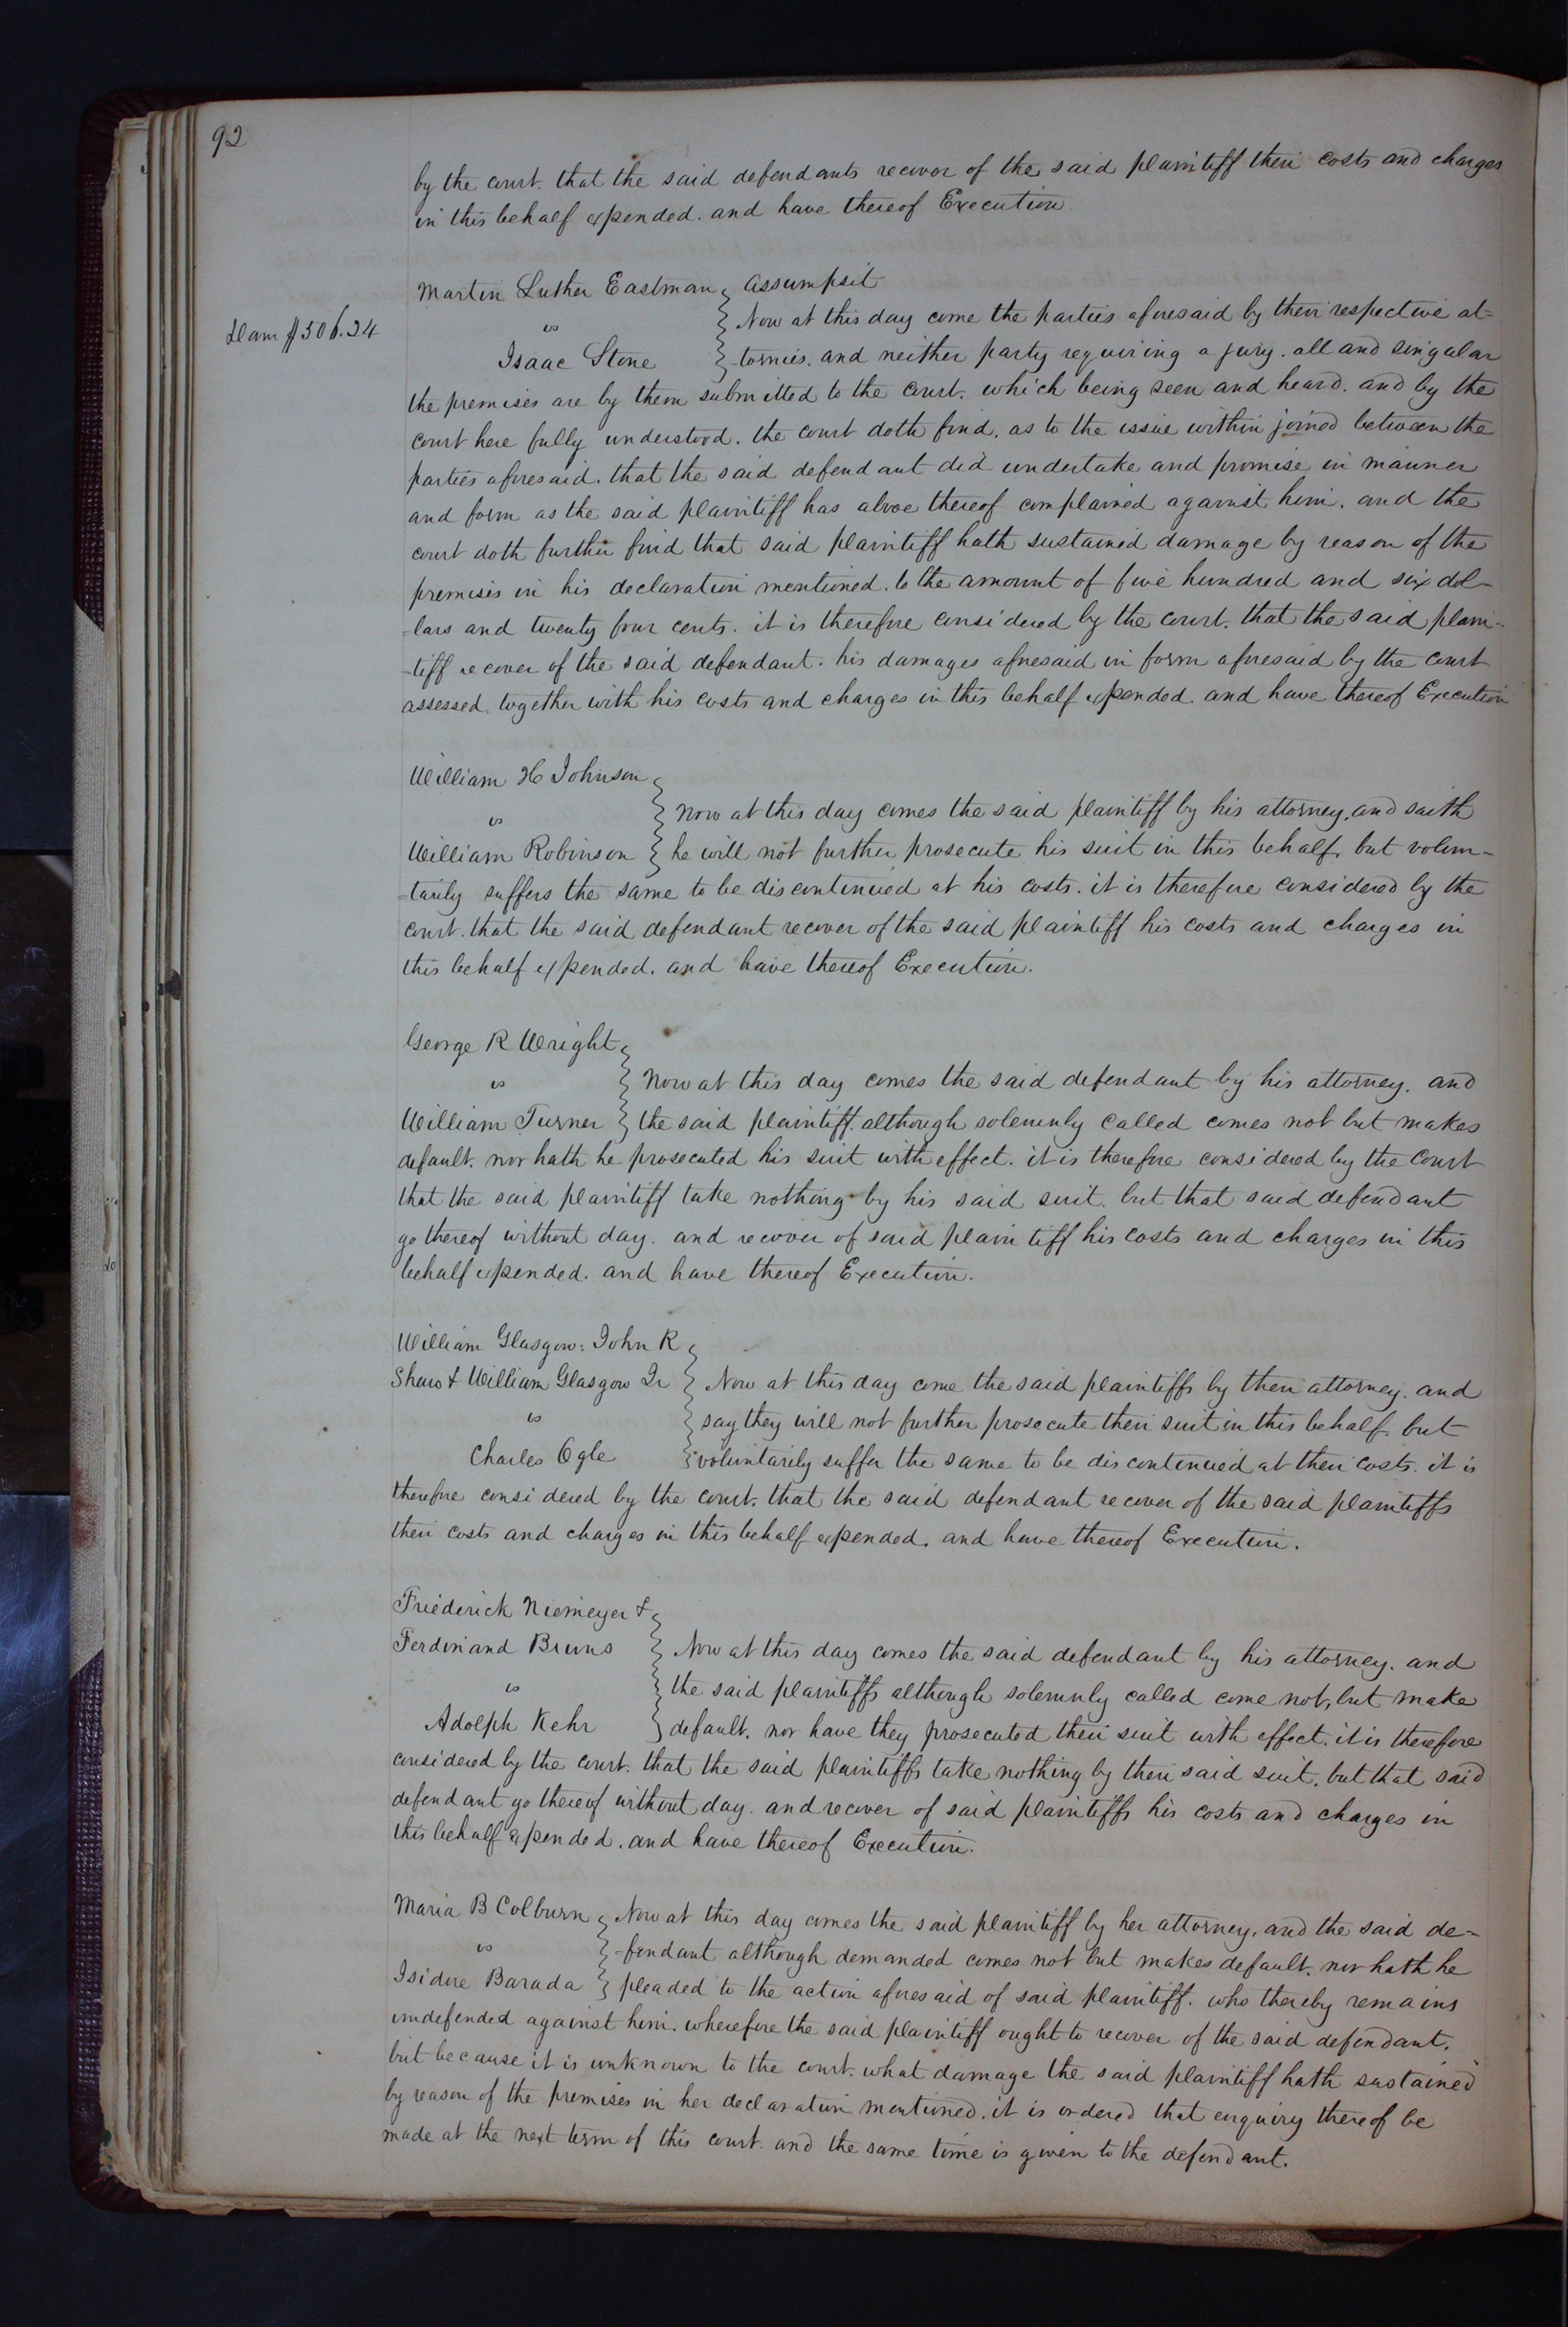 92
by the court. that the said defendants recover of the said plaintiff their costs and charges
in this behalf expended. and have thereof Execution
Martin Luther Eastman Assumpsit
Dam $506.24
vs Now at this day come the parties aforesaid by their respective at=
Isaac Stone tornies. and neither party requiring a jury. all and singular
the premises are by them submitted to the court. which being seen and heard. and by the
court here fully understood. the court doth find. as to the issue within joined between the
parties aforesaid. that the said defendant did undertake and promise in manner
and form as the said plaintiff has above thereof complained against him. and the
court doth further find that said plaintiff hath sustained damage by reason of the
premises in his declaration mentioned. to the amount of five hundred and six dol-
-lars and twenty four cents. it is therefore considered by the court. that the said plain-
-tiff recover of the said defendant. his damages aforesaid in form aforesaid by the court
assessed. together with his costs and charges in this behalf expended. and have thereof Execution
William H Johnson
vs Now at this day comes the said plaintiff by his attorney, and saith
William Robinson he will not further prosecute his suit in this behalf, but volun-
-tarily suffers the same to be discontinued at his costs. it is therefore considered by the
court. that the said defendant recover of the said plaintiff his costs and charges in
this behalf expended. and have thereof Execution.
George R Wright
vs Now at this day comes the said defendant by his attorney. and
William Turner the said plaintiff. although solemnly called comes not but makes
default. nor hath he prosecuted his suit with effect. it is therefore considered by the court
that the said plaintiff take nothing by his said suit. but that said defendant
go thereof without day. and recover of said plaintiff his costs and charges in this
behalf expended. and have thereof Execution.
William Glasgow. John R
Shaw & William Glasgow Jr Now at this day come the said plaintiffs by their attorney. and
vs say they will not further prosecute their suit in this behalf. but
Charles Ogle voluntarily suffer the same to be discontinued at their costs. it is
therefore considered by the court. that the said defendant recover of the said plaintiffs
their costs and charges in this behalf expended. and have thereof Execution.
Friederick Niemeyer &
Ferdinand Bruns Now at this day comes the said defendant by his attorney. and
vs the said plaintiffs although solemnly called come not, but make
Adolph Kehr default. nor have they prosecuted their suit with effect. it is therefore
considered by the court. that the said plaintiffs take nothing by their said suit. but that said
defendant go thereof without day. and recover of said plaintiffs his costs and charges in
this behalf expended. and have thereof Execution.
Maria B Colburn Now at this day comes the said plaintiff by her attorney, and the said de-
vs -fendant although demanded comes not but makes default. nor hath he
Isidore Barada pleaded to the action aforesaid of said plaintiff. who thereby remains
undefended against him. wherefore the said plaintiff ought to recover of the said defendant.
but because it is unknown to the court. what damage the said plaintiff hath sustained
by reason of the premises in her declaration mentioned. it is ordered that enquiry thereof be
made at the next term of this court. and the same time is given to the defendant.